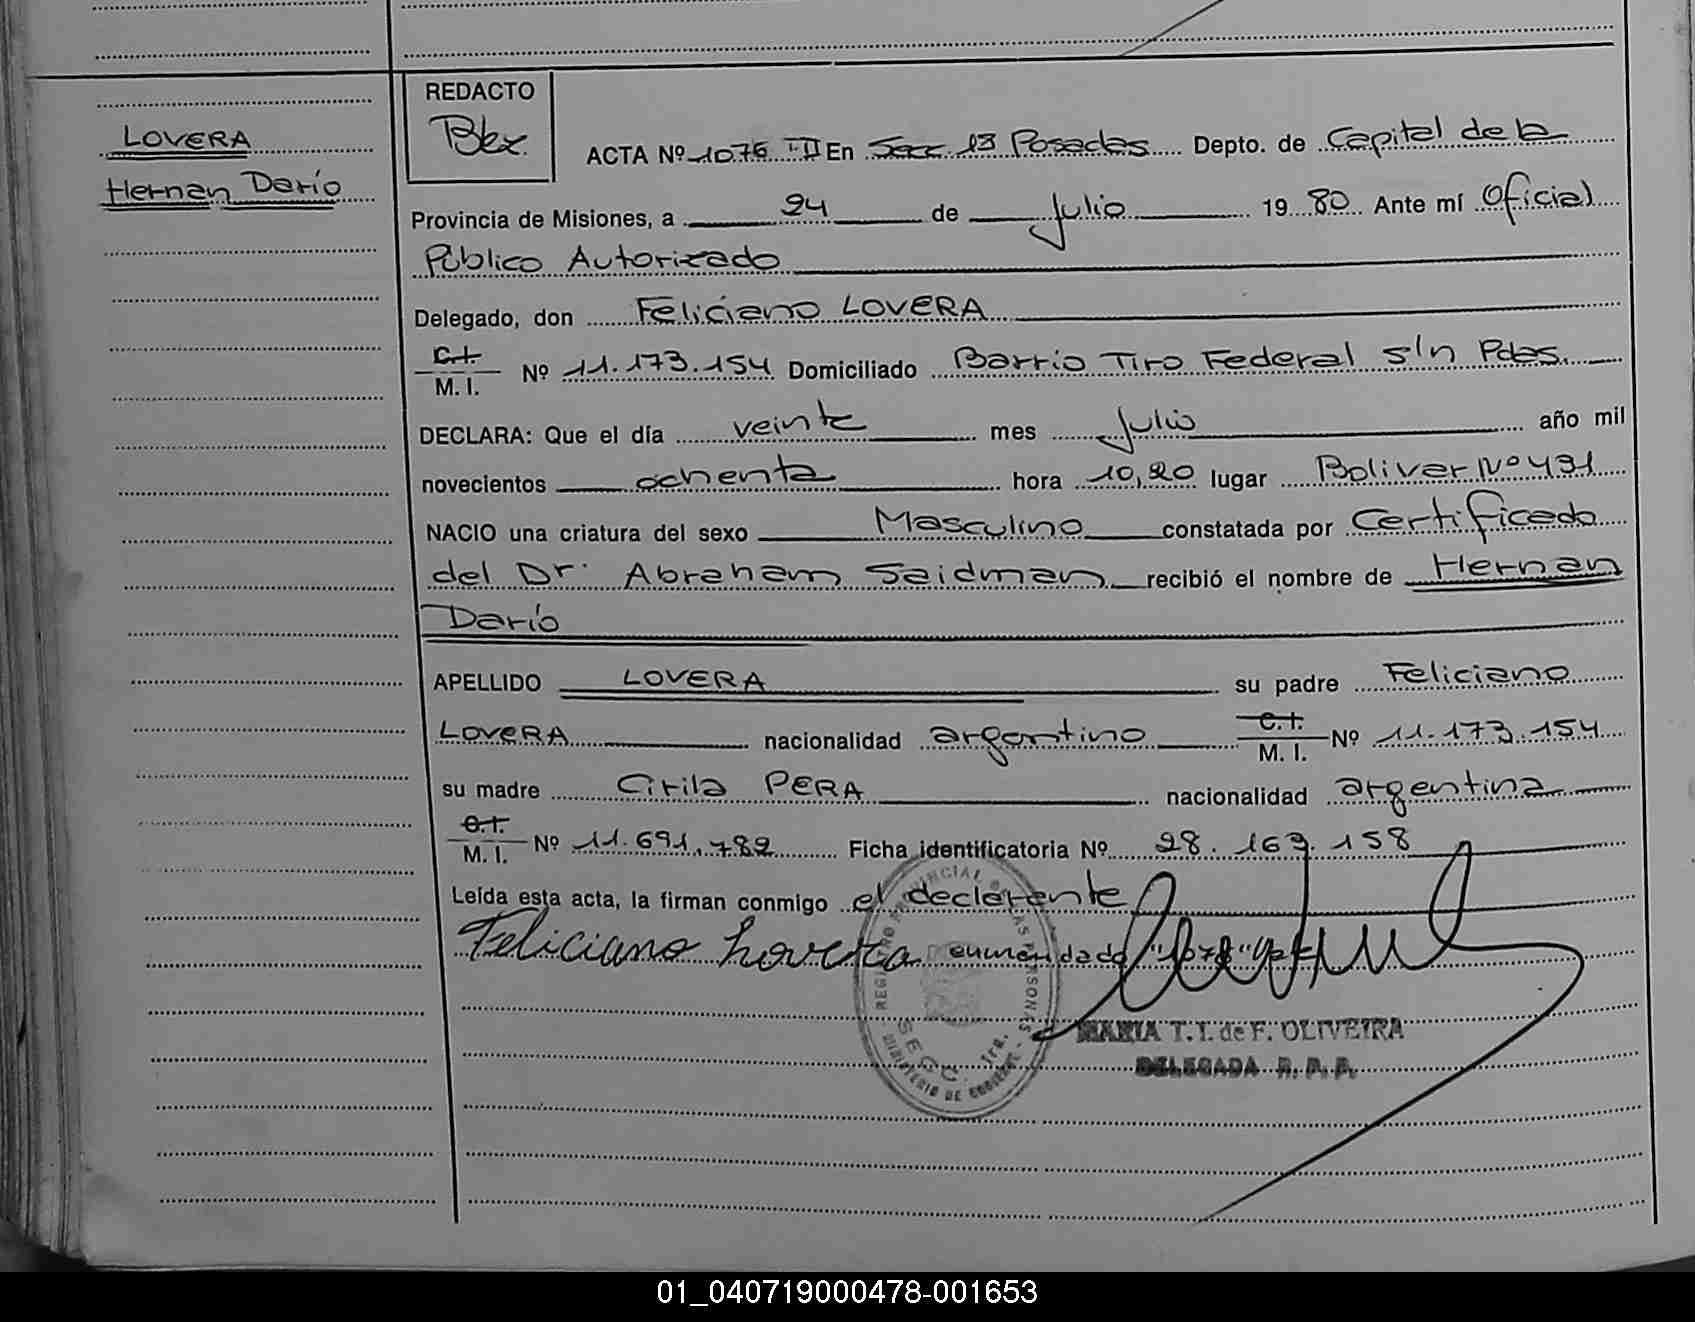 LOVERA
Hernan Darío
REDACTO
ACTA Nº 1076 TII En Secc 13 Posadas Depto. de Capital de la
Provincia de Misiones, a 24 de Julio 1980 Ante mí Oficial
Público Autorizado
Delegado, don Feliciano LOVERA
C.I.
M. I. Nº 11.173.154 Domiciliado Barrio Tiro Federal s/n Pdas.
DECLARA: Que el día veinte mes Julio año mil
novecientos ochenta hora 10,20 lugar Bolivar Nº 491
NACIO una criatura del sexo Masculino constatada por Certificado
del Dr. Abraham Saidman recibió el nombre de Hernan
Darío
APELLIDO LOVERA su padre Feliciano
LOVERA nacionalidad argentino C.I. M. I. Nº 11.173.154
su madre Cirila PERA nacionalidad argentina
C.I.
M. I. Nº 11.691.782 Ficha identificatoria Nº 28.169.158
Leída esta acta, la firman conmigo el declarente
Feliciano Lovera enmendado "1076"
REGISTRO PROVINCIAL DE LAS PERSONAS
SECC. 1ra.
MINISTERIO DE GOBIERNO
MARIA T. I. de F. OLIVEIRA
DELEGADA R. P. P.
01_040719000478-001653